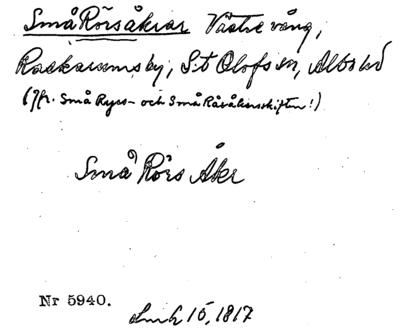 Små Rörsåkrar Västre vång,
Raskarums by, S:t Olofs sn, Albo hd
(Jfr. Små Ryss- och Små Råvåkersskiften!)
Små Rörs Åkr
Nr 5940.
15, 1817